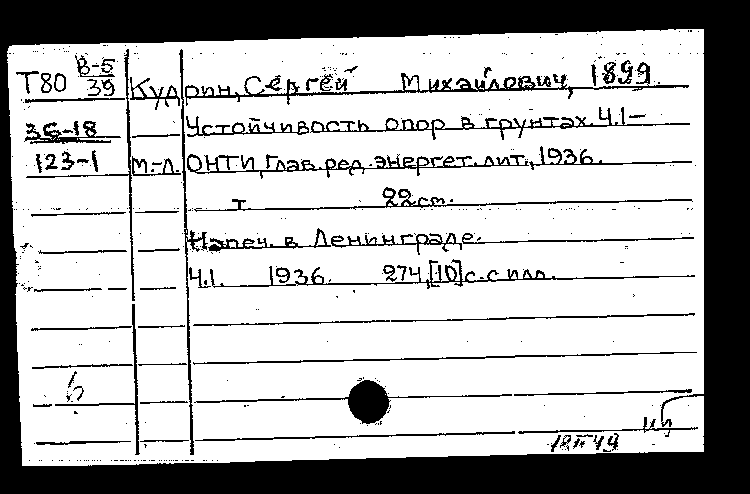 Т80 В-5/39 Кудрин, Сергей Михайлович, 1899.
36-18 Устойчивость опор в грунтах. Ч.1-
123-1 М.-Л. ОНТИ, Глав. ред. энергет. лит., 1936.
т 22 см.
Напеч. в Ленинграде.
Ч.1. 1936. 274, [10] с. с илл.
6